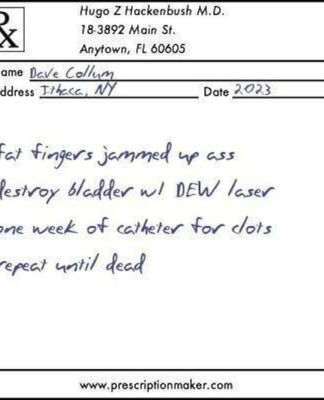 Rx
Hugo Z Hackenbush M.D.
18-3892 Main St.
Anytown, FL 60605
ame Dave Collum
ddress Ithaca, NY Date 2023
fat fingers jammed up ass
destroy bladder w/ DEW laser
one week of catheter for clots
repeat until dead
www.prescriptionmaker.com